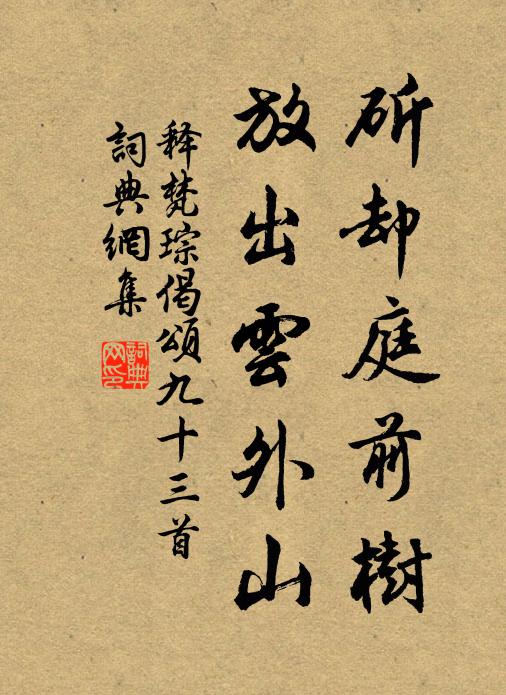 斫却庭前樹
放出雲外山
释梵琮偈頌九十三首
詞典網集
詞典
网印